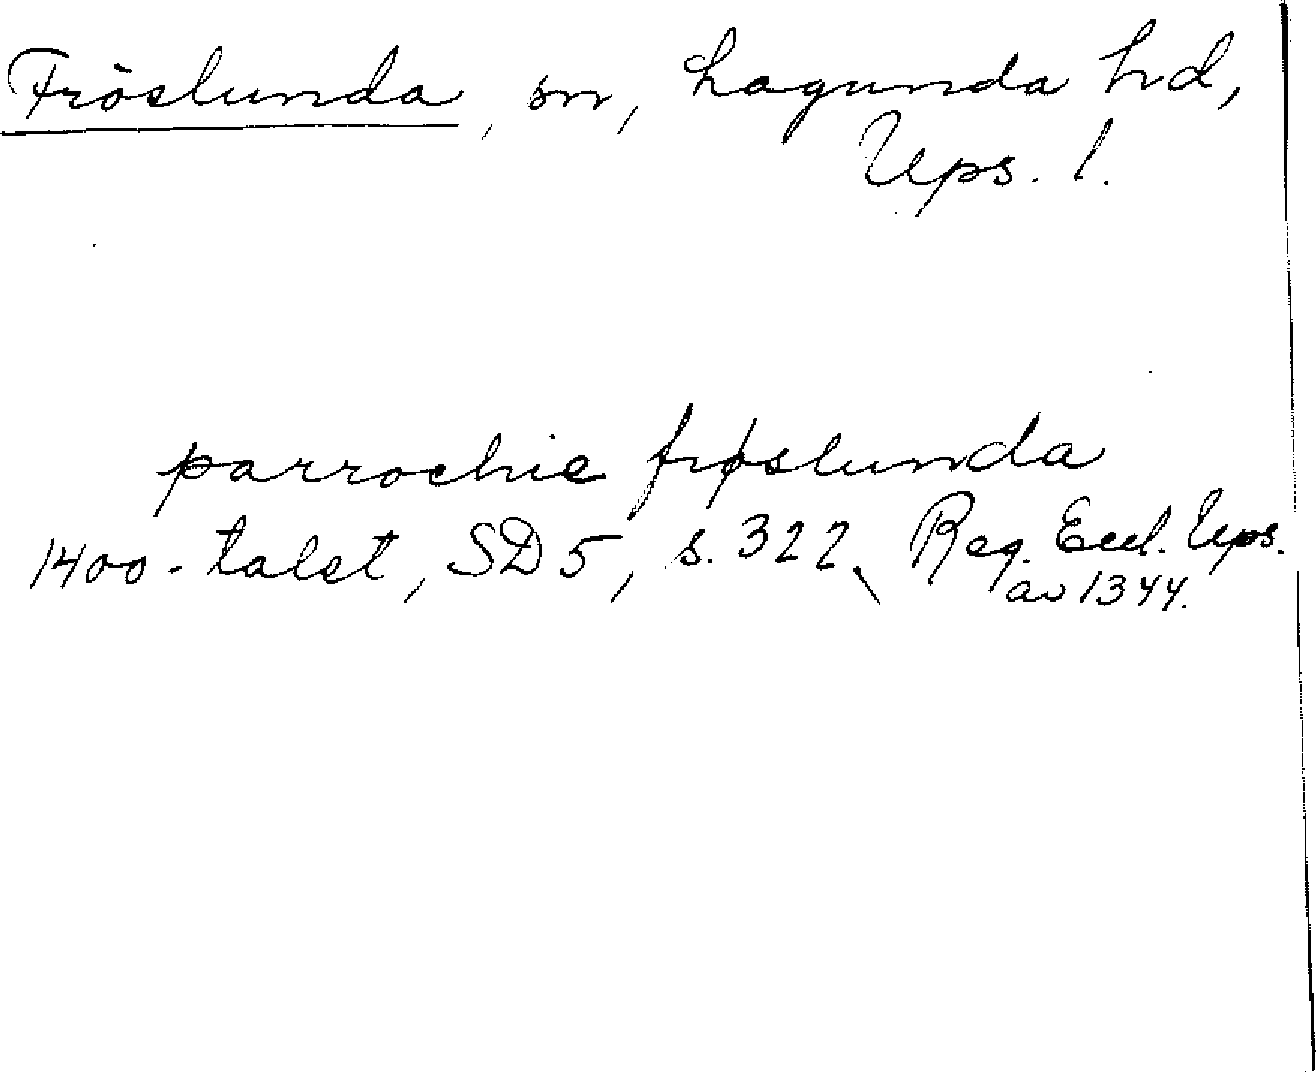 Fröslunda, sn, Lagunda hd,
Ups. l.
parrochie frøslunda
1400-talet, SD 5, s. 322, Reg. Eccl. Ups.
av 1344.